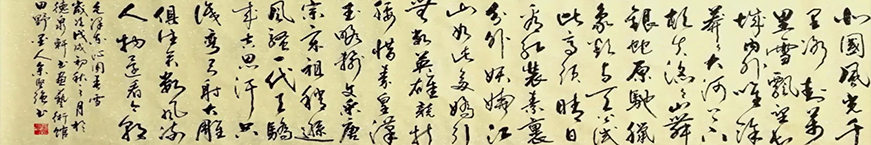 北國風光千
里冰封萬
里雪飄望長
城內外唯餘
莽莽大河上下
頓失滔滔山舞
銀蛇原馳臘
象欲與天公試
比高須晴日
看紅裝素裹
分外妖嬈江
山如此多嬌引
無數英雄競折
腰惜秦皇漢
武略輸文采唐
宗宋祖稍遜
風騷一代天驕
成吉思汗只
識彎弓射大雕
俱往矣數風流
人物還看今朝
毛澤東沁園春雪
歲次戊戌初秋之月於
德泉軒書畫藝術館
田野墨人 德書